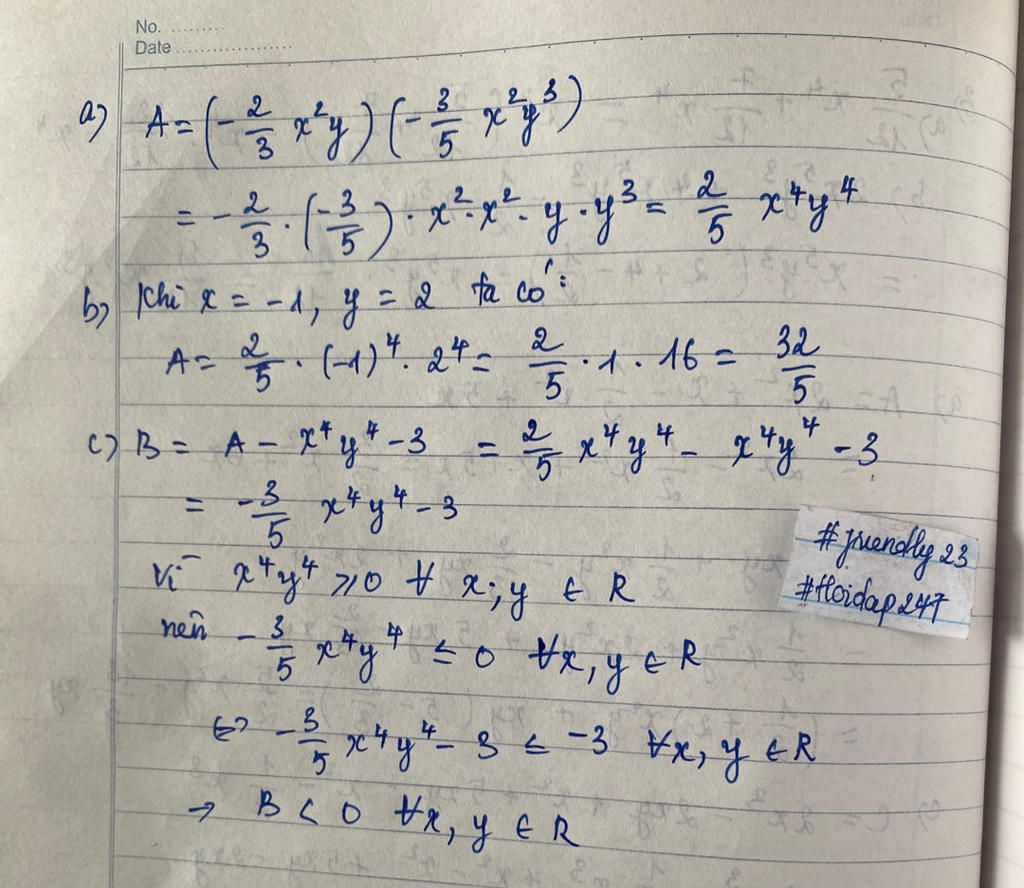 No. .........
Date ...................
a) A = (-2/3 x²y) (-3/5 x²y³)
= -2/3 · (-3/5) · x² · x² · y · y³ = 2/5 x⁴y⁴
b) Khi x = -1, y = 2 ta có:
A = 2/5 · (-1)⁴ · 2⁴ = 2/5 · 1 · 16 = 32/5
c) B = A - x⁴y⁴ - 3 = 2/5 x⁴y⁴ - x⁴y⁴ - 3
= -3/5 x⁴y⁴ - 3
Vì x⁴y⁴ ⩾ 0 ∀ x; y ∈ R
nên -3/5 x⁴y⁴ ≤ 0 ∀x, y ∈ R
⇔ -3/5 x⁴y⁴ - 3 ≤ -3 ∀x, y ∈ R
→ B < 0 ∀x, y ∈ R
#friendly23
#Hoidap247